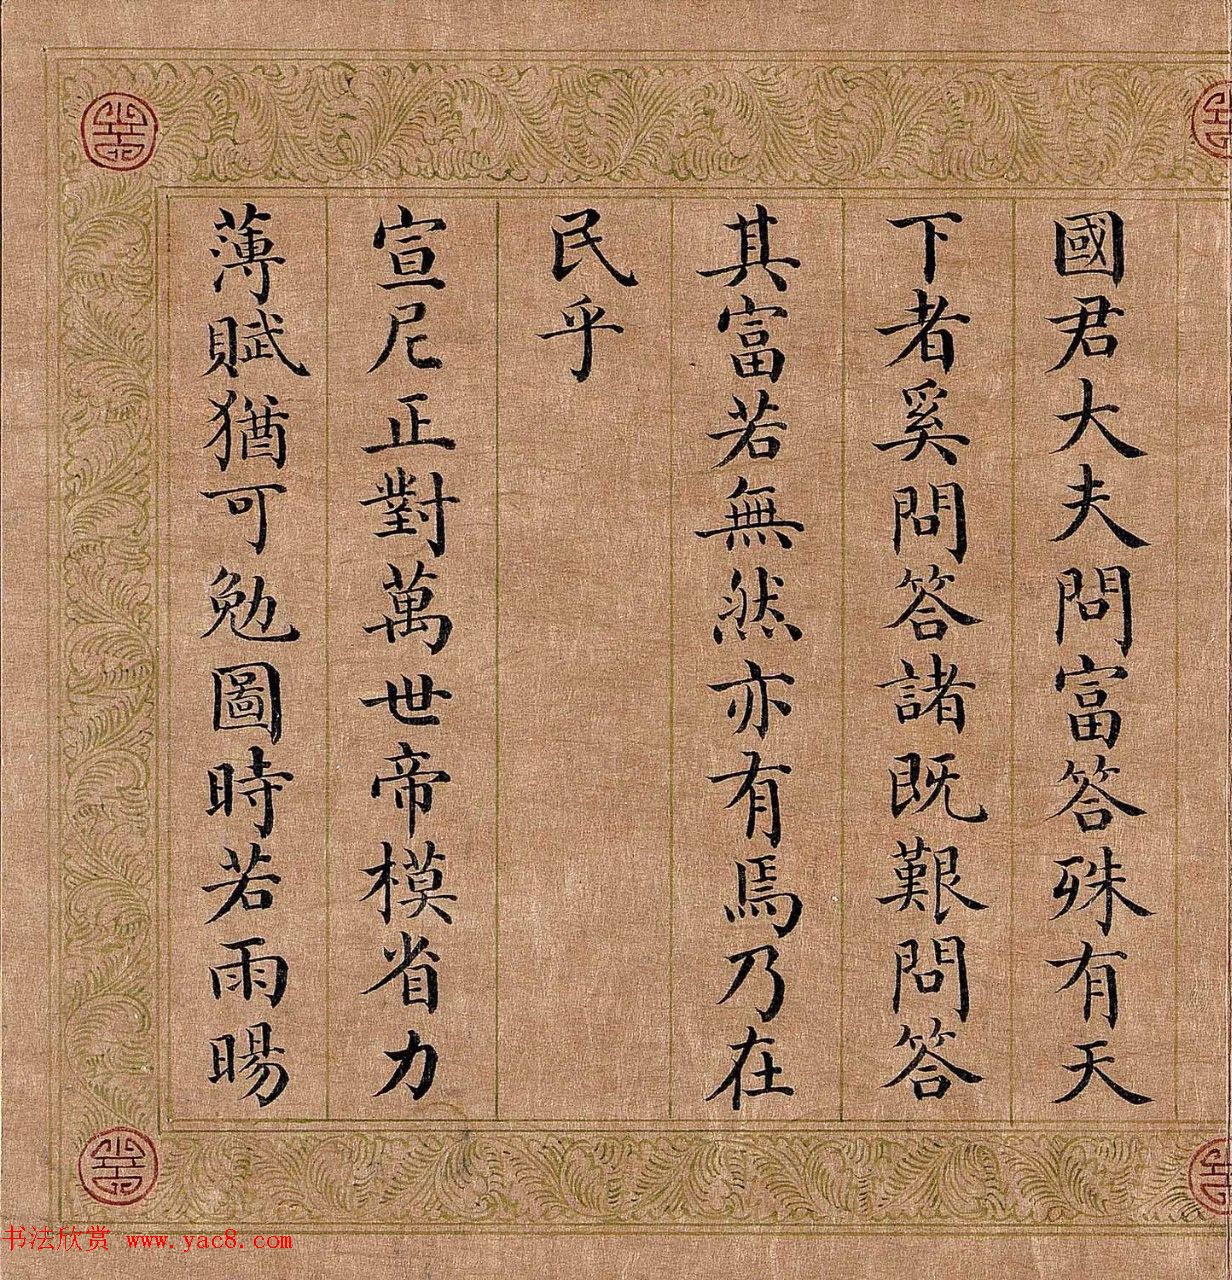 國君大夫問富答殊有天
下者奚問答諸既艱問答
其富若無然亦有焉乃在
民乎
宣尼正對萬世帝模省力
薄賦猶可勉圖時若雨暘
书法欣赏 www.yac8.com